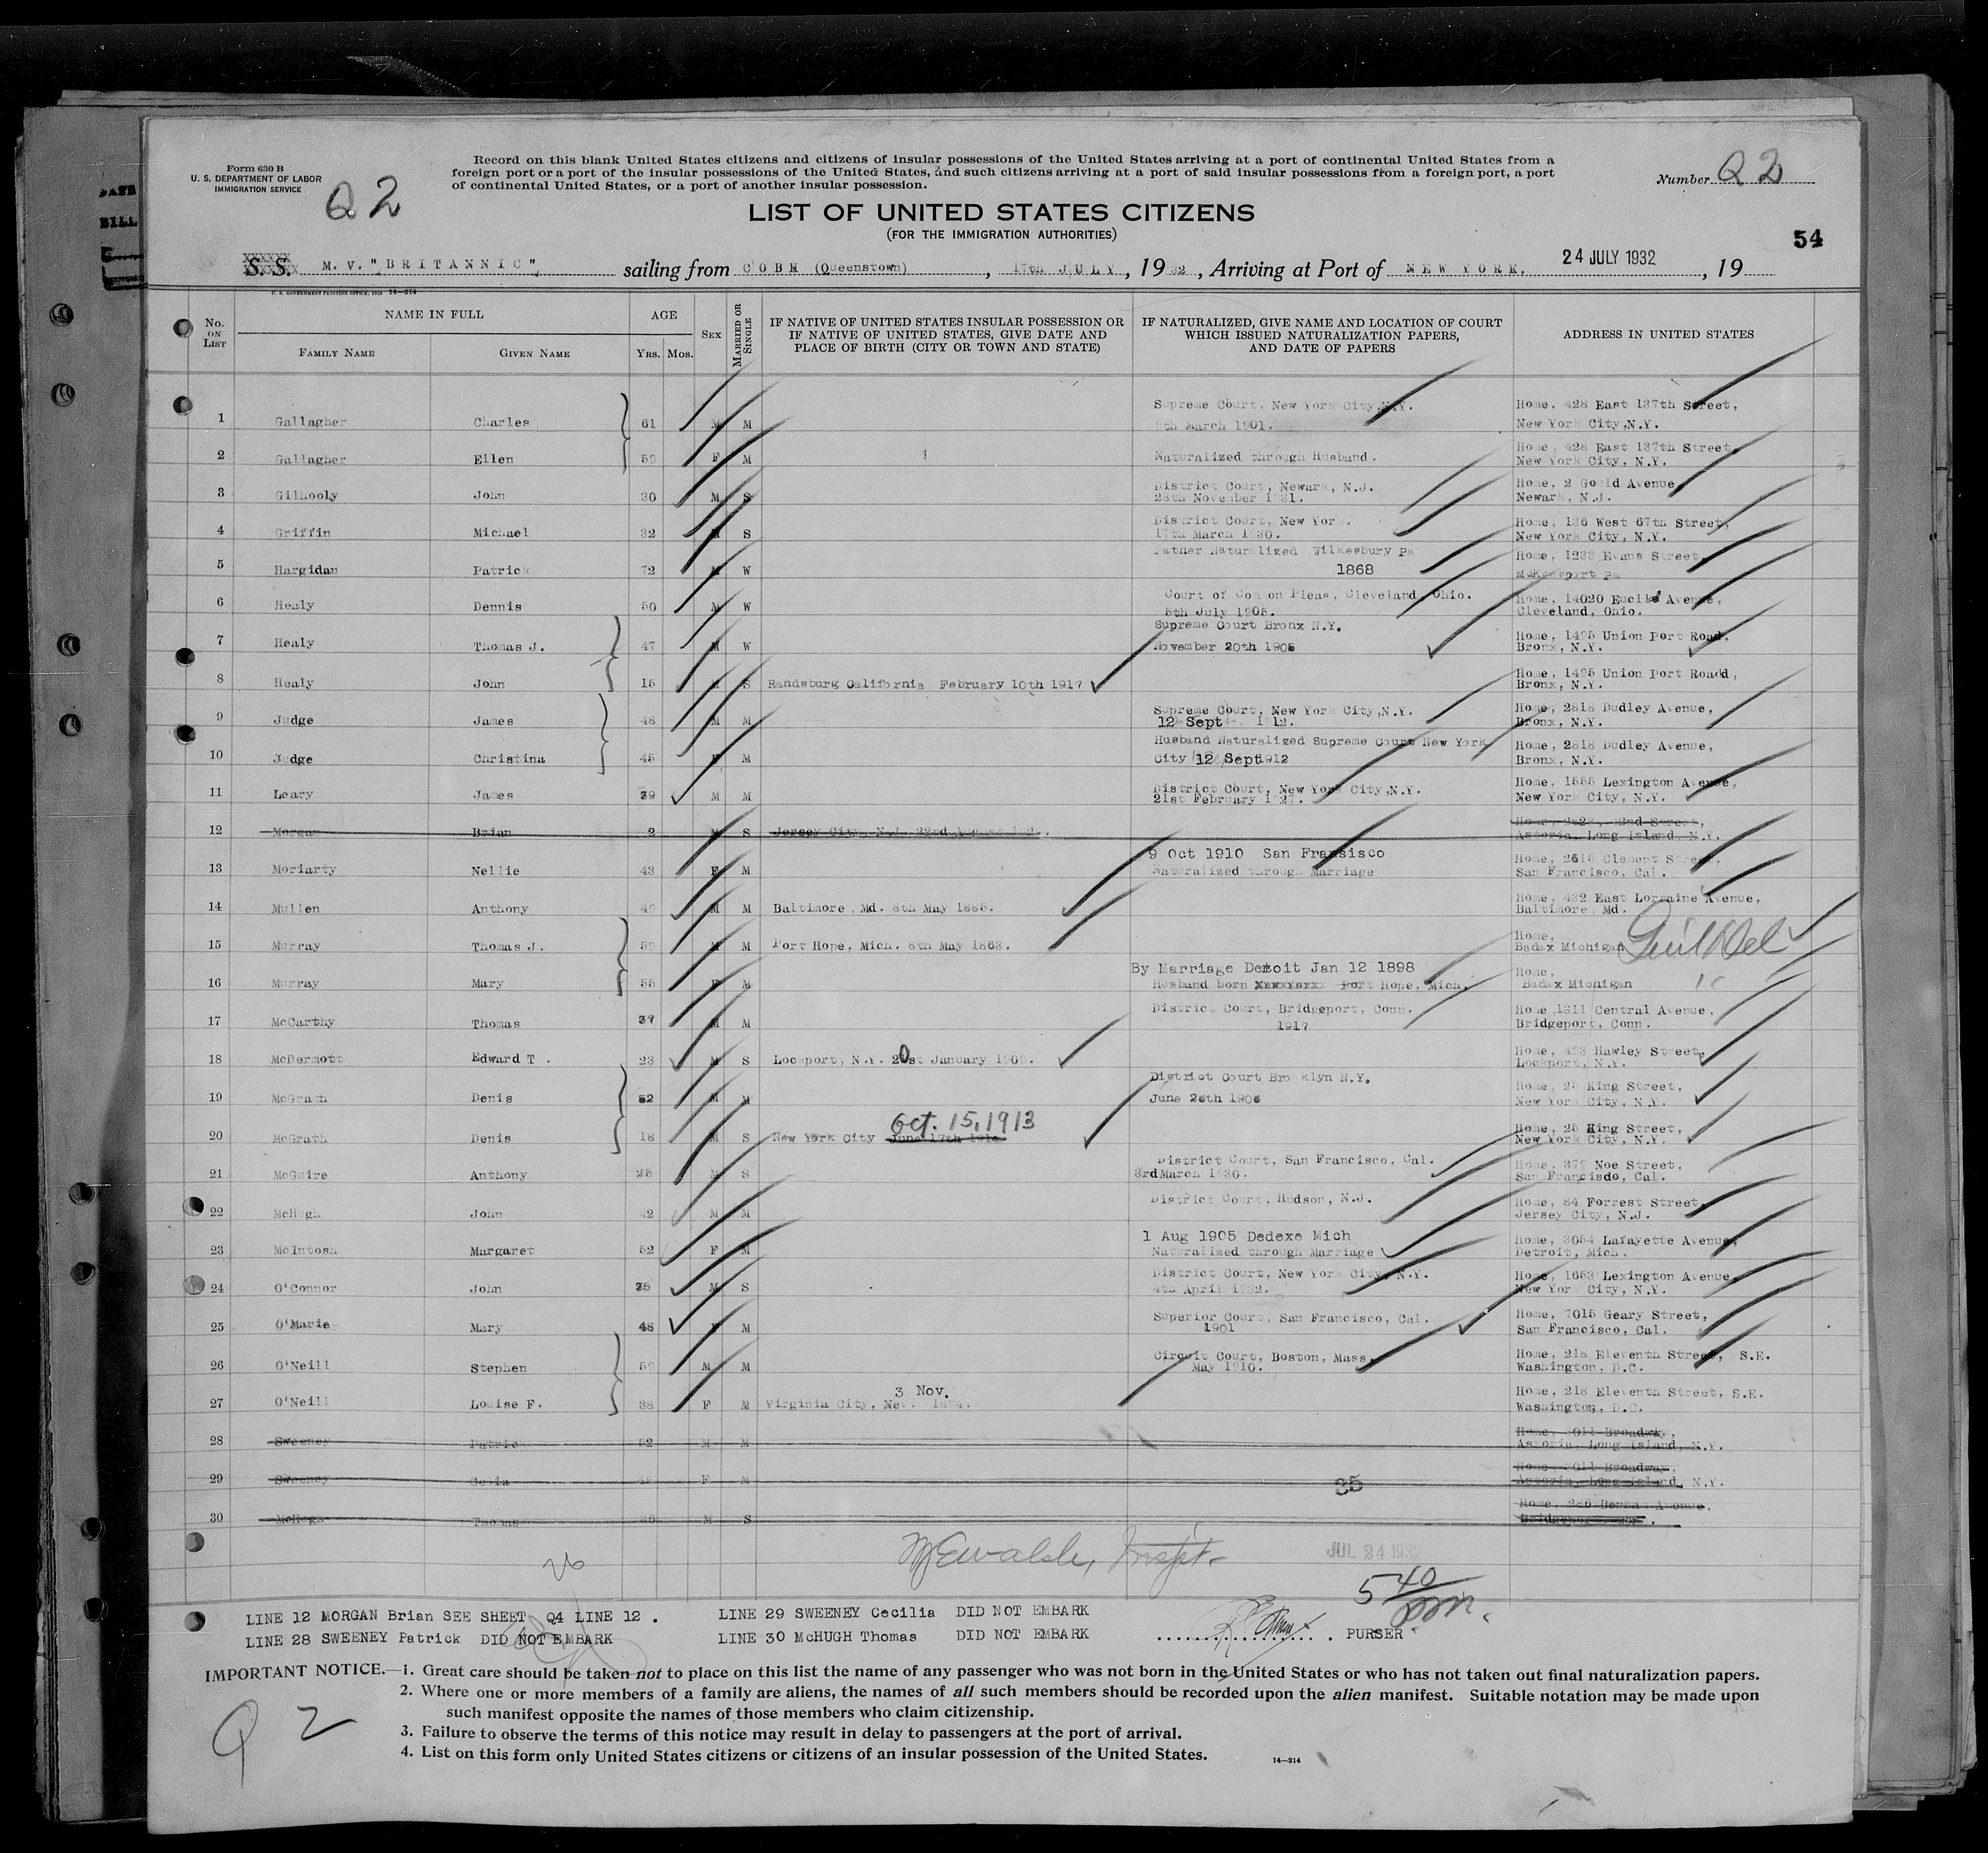 DATE
BILL
Form 630 B
U. S. DEPARTMENT OF LABOR
IMMIGRATION SERVICE
Q2
Record on this blank United States citizens and citizens of insular possessions of the United States arriving at a port of continental United States from a
foreign port or a port of the insular possessions of the United States, and such citizens arriving at a port of said insular possessions from a foreign port, a port
of continental United States, or a port of another insular possession.
Number Q2
LIST OF UNITED STATES CITIZENS
(FOR THE IMMIGRATION AUTHORITIES)
54
S.S. M.V. "BRITANNIC" sailing from COBH (Queenstown), 17th JULY, 1932, Arriving at Port of NEW YORK. 24 JULY 1932, 19
U. S. GOVERNMENT PRINTING OFFICE: 14—214
No. ON LIST NAME IN FULL FAMILY NAME GIVEN NAME AGE YRS. MOS. SEX MARRIED OR SINGLE IF NATIVE OF UNITED STATES INSULAR POSSESSION OR IF NATIVE OF UNITED STATES, GIVE DATE AND PLACE OF BIRTH (CITY OR TOWN AND STATE) IF NATURALIZED, GIVE NAME AND LOCATION OF COURT WHICH ISSUED NATURALIZATION PAPERS, AND DATE OF PAPERS ADDRESS IN UNITED STATES
1 Gallagher Charles 61 M M Supreme Court, New York City, N.Y. 9th March 1901. Home, 428 East 137th Street, New York City, N.Y.
2 Gallagher Ellen 59 F M Naturalized through Husband. Home, 428 East 137th Street, New York City, N.Y.
3 Gilhooly John 30 M S District Court, Newark, N.J. 28th November 1931. Home, 2 Gould Avenue, Newark, N.J.
4 Griffin Michael 32 M S District Court, New York. 17th March 1930. Home, 136 West 67th Street, New York City, N.Y.
5 Hargidan Patrick 72 M W Father Naturalized Wilkesbury Pa 1868 Home, 1233 Evans Street, McKeesport Pa
6 Healy Dennis 50 M W Court of Common Pleas, Cleveland, Ohio. 5th July 1905. Home, 14020 Euclid Avenue, Cleveland, Ohio.
7 Healy Thomas J. 47 M W Supreme Court Bronx N.Y. November 20th 1905 Home, 1495 Union Port Road, Bronx, N.Y.
8 Healy John 15 M S Randsburg California February 10th 1917 Home, 1495 Union Port Road, Bronx, N.Y.
9 Judge James 48 M M Supreme Court, New York City, N.Y. 12 Sept 1912. Home, 2818 Dudley Avenue, Bronx, N.Y.
10 Judge Christina 45 F M Husband Naturalized Supreme Court New York City 12 Sept 1912 Home, 2818 Dudley Avenue, Bronx, N.Y.
11 Leary James 39 M M District Court, New York City, N.Y. 21st February 1927. Home, 1555 Lexington Avenue, New York City, N.Y.
12 Morgan Brian 2 M S Jersey City, N.J. 22nd August Home, 42nd Street, Astoria, Long Island, N.Y.
13 Moriarty Nellie 43 F M 9 Oct 1910 San Fransisco Naturalized through Marriage Home, 2615 Clement Street, San Francisco, Cal.
14 Mullen Anthony M M Baltimore, Md. 8th May 1885. Home, 432 East Lorraine Avenue, Baltimore, Md.
15 Murray Thomas J. 59 M M Port Hope, Mich. 8th May 1863. Home, Badax Michigan
16 Murray Mary 55 F M By Marriage Detroit Jan 12 1898 Husband born Port Hope, Mich. Home, Badax Michigan
17 McCarthy Thomas 37 M M District Court, Bridgeport, Conn. 1917 Home, 1311 Central Avenue, Bridgeport, Conn.
18 McDermott Edward T. 23 M S Lockport, N.Y. 20st January 1909. Home, 493 Hawley Street, Lockport, N.Y.
19 McGrath Denis 52 M M District Court Brooklyn N.Y. June 26th 1906 Home, 25 King Street, New York City, N.Y.
20 McGrath Denis 18 M S New York City June 17th Oct. 15, 1913 Home, 25 King Street, New York City, N.Y.
21 McGuire Anthony 25 M S District Court, San Francisco, Cal. 3rd March 1930. Home, 379 Noe Street, San Francisco, Cal.
22 McHugh John 42 M M District Court, Hudson, N.J. Home, 84 Forrest Street, Jersey City, N.J.
23 McIntosh Margaret 52 F M 1 Aug 1905 Dedexo Mich Naturalized through Marriage Home, 3054 Lafayette Avenue, Detroit, Mich.
24 O'Connor John 35 M S District Court, New York City, N.Y. 4th April 1932. Home, 1653 Lexington Avenue, New York City, N.Y.
25 O'Marie Mary 48 F M Superior Court, San Francisco, Cal. 1901 Home, 7015 Geary Street, San Francisco, Cal.
26 O'Neill Stephen 59 M M Circuit Court, Boston, Mass. May 1910. Home, 218 Eleventh Street, S.E. Washington, D.C.
27 O'Neill Louise F. 38 F M 3 Nov. Virginia City, Nev. 1894. Home, 218 Eleventh Street, S.E. Washington, D.C.
28 Sweeney Patrick 52 M M Home, Broadway, Astoria, Long Island, N.Y.
29 Sweeney Celia F M 35 Home, Broadway, Astoria, Long Island, N.Y.
30 McHugh Thomas M S Home, Avenue,
26
Inspt.
JUL 24 1932
5 40 pm.
LINE 12 MORGAN Brian SEE SHEET Q4 LINE 12 . LINE 29 SWEENEY Cecilia DID NOT EMBARK
LINE 28 SWEENEY Patrick DID NOT EMBARK LINE 30 McHUGH Thomas DID NOT EMBARK PURSER
IMPORTANT NOTICE.—1. Great care should be taken not to place on this list the name of any passenger who was not born in the United States or who has not taken out final naturalization papers.
2. Where one or more members of a family are aliens, the names of all such members should be recorded upon the alien manifest. Suitable notation may be made upon
such manifest opposite the names of those members who claim citizenship.
3. Failure to observe the terms of this notice may result in delay to passengers at the port of arrival.
4. List on this form only United States citizens or citizens of an insular possession of the United States.
14—214
Q 2